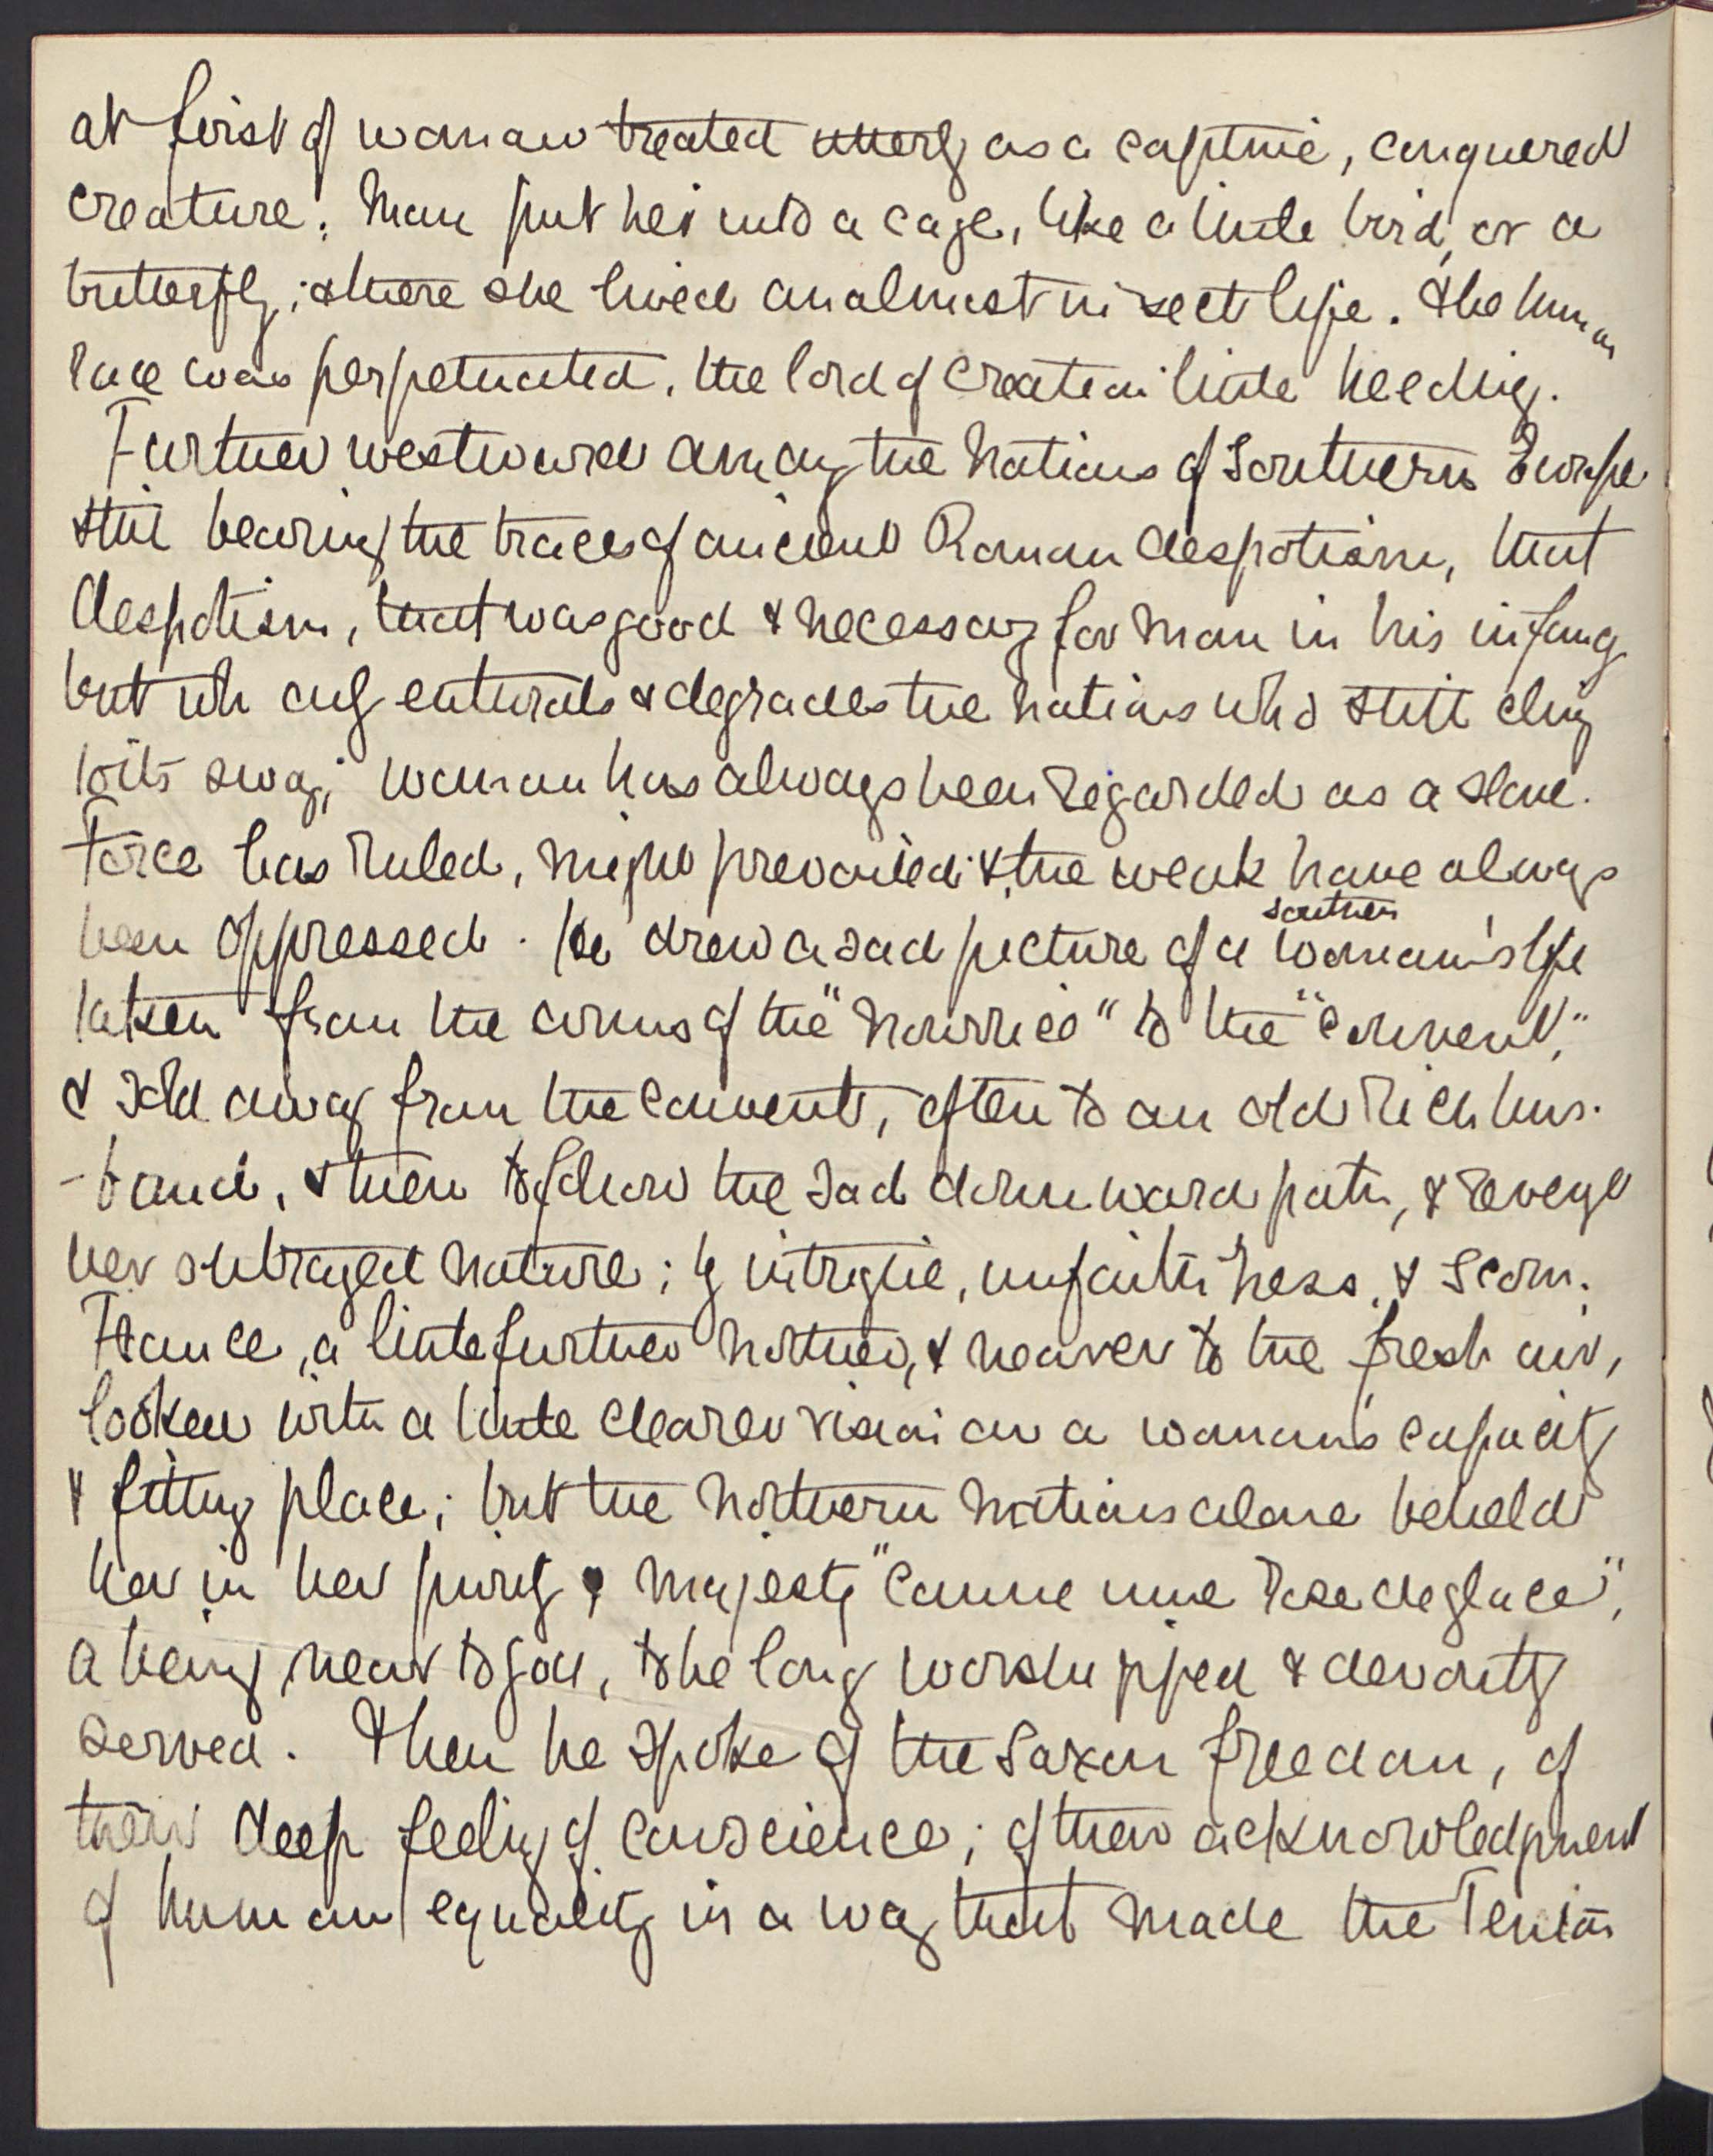 at first of woman treated utterly as a captive, conquered
creature. Man put her into a cage, like a little bird, or a
butterfly; & there she lived an almost insect life. & the human
race was perpetuated, the lord of creation little heeding.
Further westward among the nations of Southern Europe
still bearing the traces of ancient Roman despotism, that
despotism, that was good & necessary for man in his infancy
but wh only enthrals & degrades the nations who still cling
to its sway; woman has always been regarded as a slave.
Force has ruled, might prevailed & the weak have always
been oppressed. He drew a sad picture of a southern woman's life
taken from the arms of the "nourrice" to the "convent,"
& sold away from the convent, often to an old rich hus-
-band, & then to follow the sad downward path, & revenge
her outraged nature; by intrigue, unfaithness, & scorn.
France, a little further norther, & nearer to the fresh air,
looked with a little clearer vision on a woman's capacity
& fitting place; but the northern nations alone beheld
her in her purity & majesty "comme une rose de glace",
a being near to God, to be long worshipped & devoutly
served. Then he spoke of the Saxon freedom, of
their deep feeling of conscience; of their acknowledgment
of human equality in a way that made the